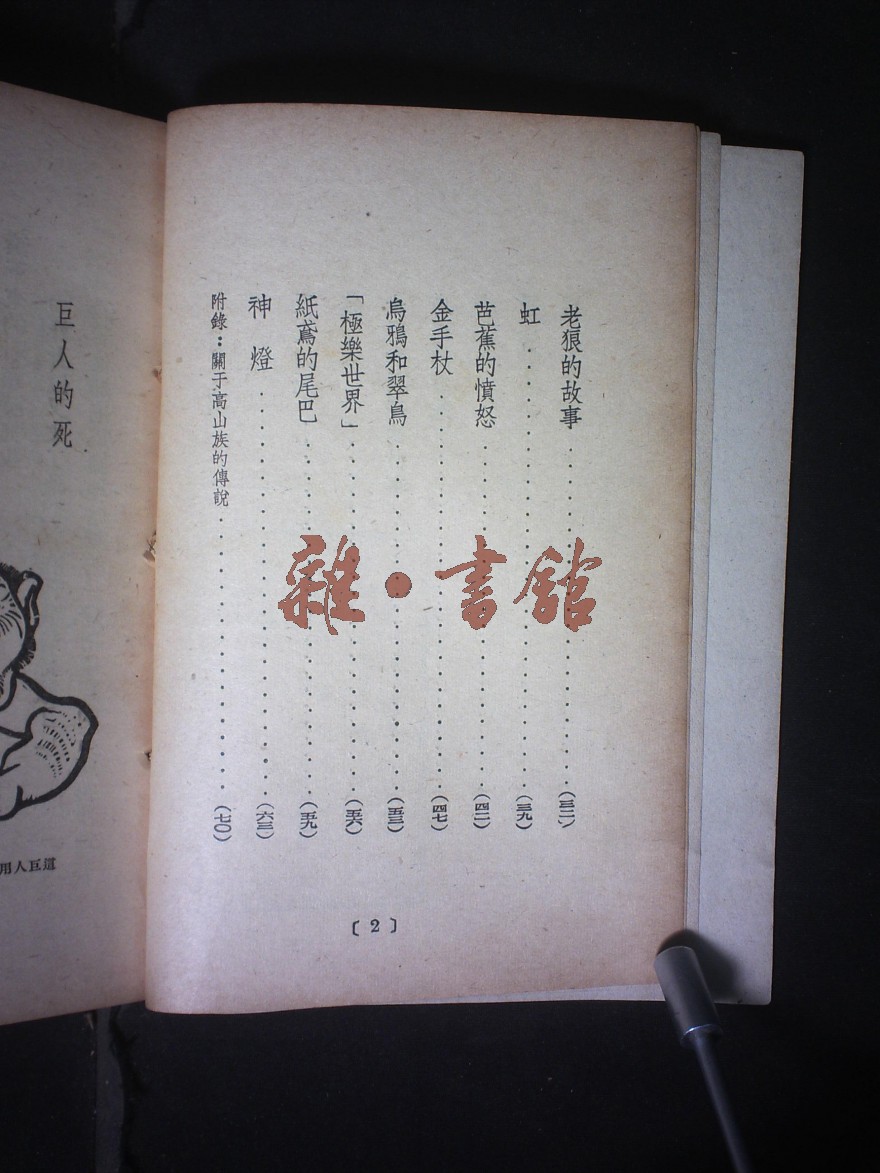 老狼的故事(三二)
虹(三九)
芭蕉的憤怒(四二)
金手杖(四七)
烏鴉和翠鳥(五三)
「極樂世界」(五六)
紙鳶的尾巴(五九)
神燈(六三)
附錄：關于高山族的傳說(七〇)
〔2〕
雜·書館
巨人的死
用人巨這